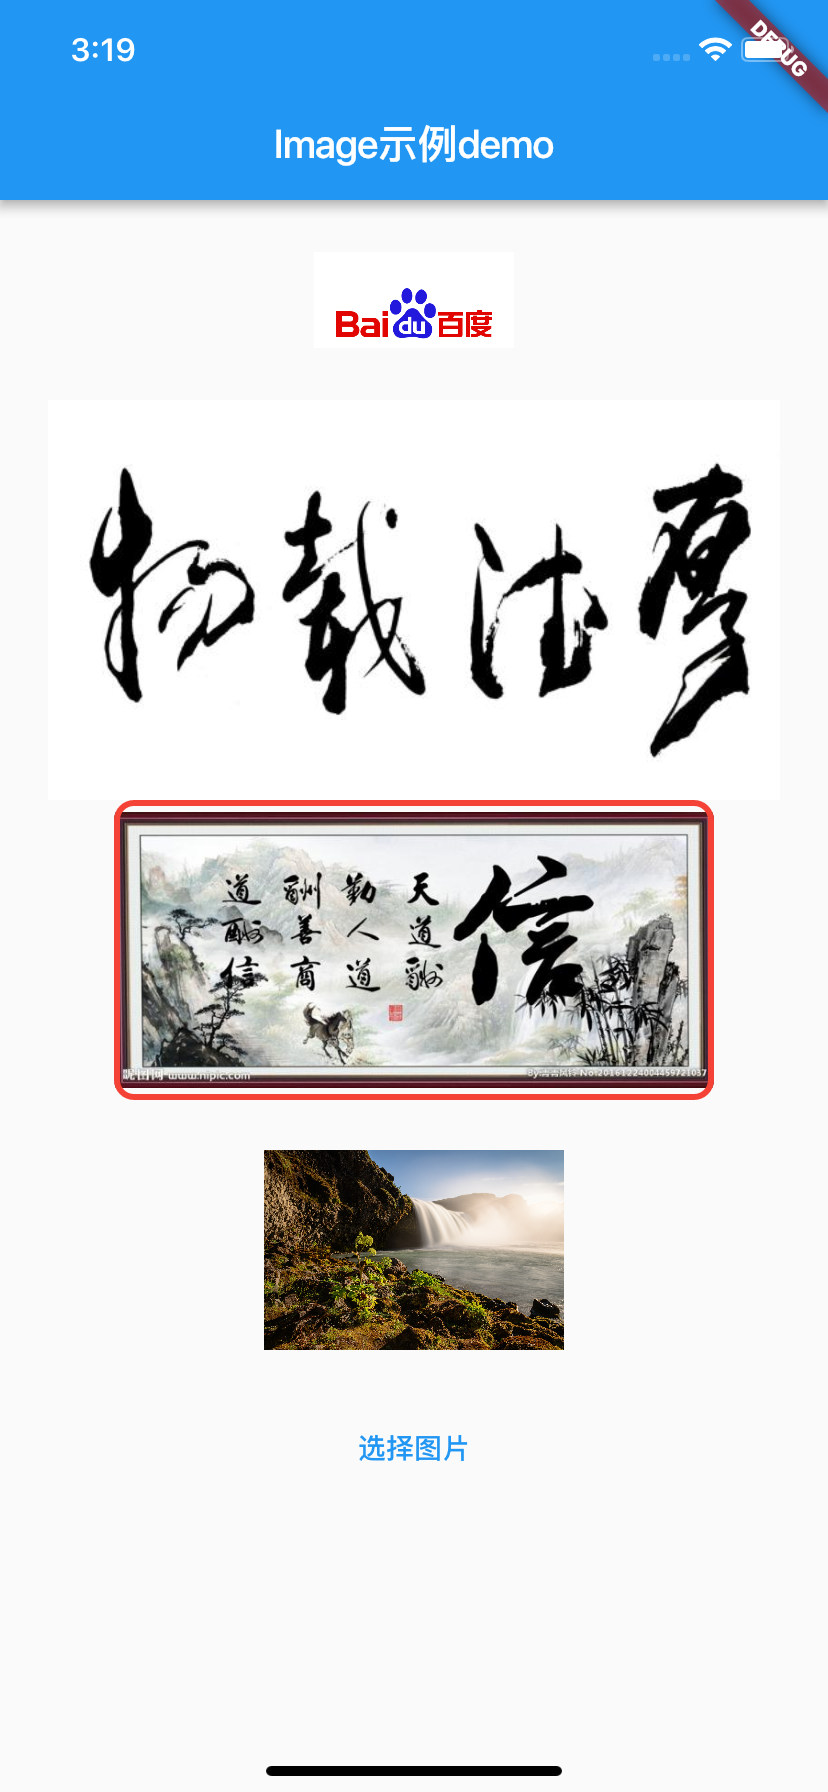 3:19
DEBUG
Image示例demo
Bai du 百度
厚德载物
信
天道酬
勤人道
酬善商
道酬信
昵图网 www.nipic.com
No:20161224004459721037
选择图片